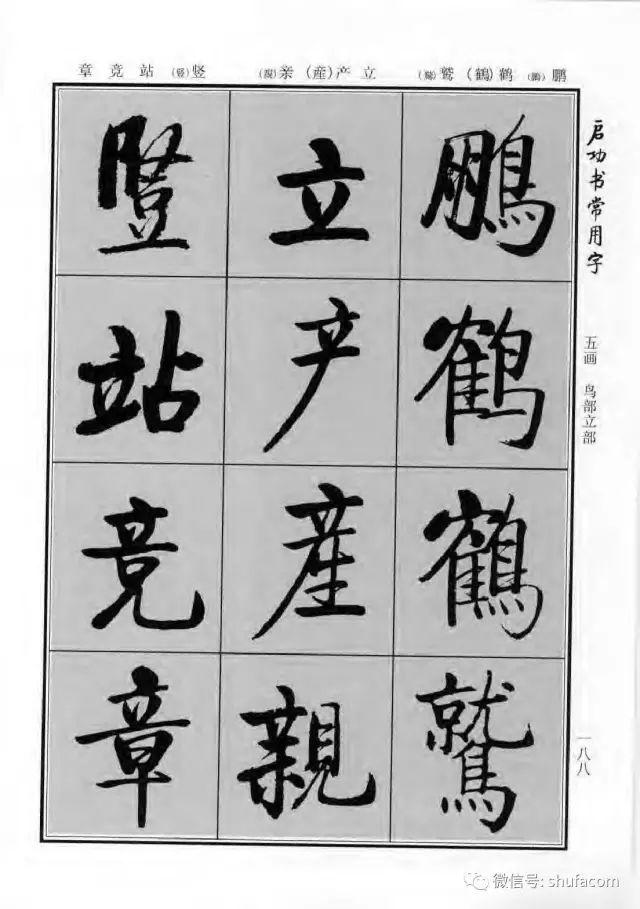 启功书常用字
五画 鸟部立部
一八八
鹏(鵬) 鹤(鶴) 鹫(鷲)
立 产(産) 亲(親)
竖(豎) 站 竟 章
鵬
鹤
鶴
鷲
立
产
産
親
豎
站
竟
章
微信号: shufacom